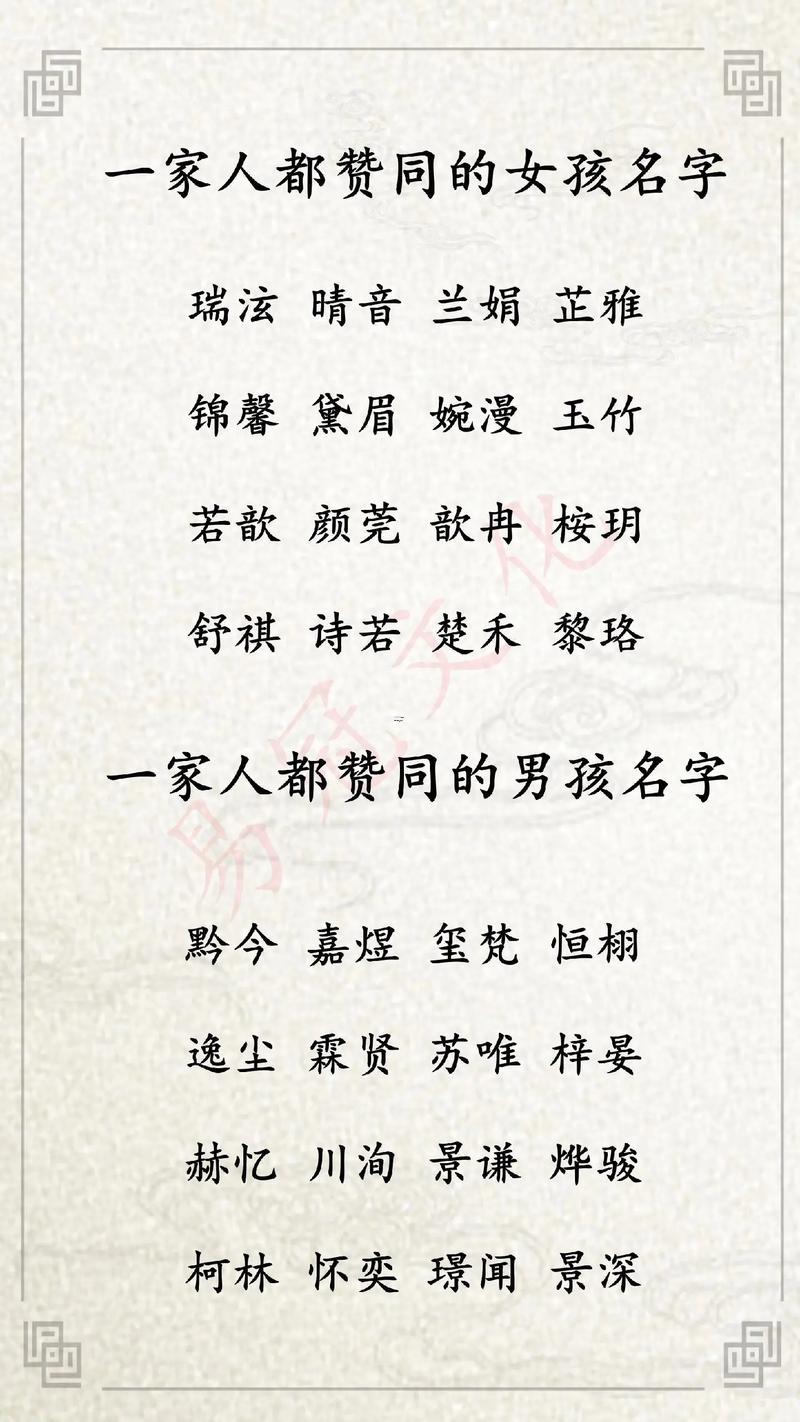 一家人都赞同的女孩名字
瑞泫 晴音 兰娟 芷雅
锦馨 黛眉 婉漫 玉竹
若歆 颜莞 歆冉 桉玥
舒祺 诗若 楚禾 黎珞
一家人都赞同的男孩名字
黔今 嘉煜 玺梵 恒栩
逸尘 霖贤 苏唯 梓晏
赫忆 川洵 景谦 烨骏
柯林 怀奕 璟闻 景深
易冠文化